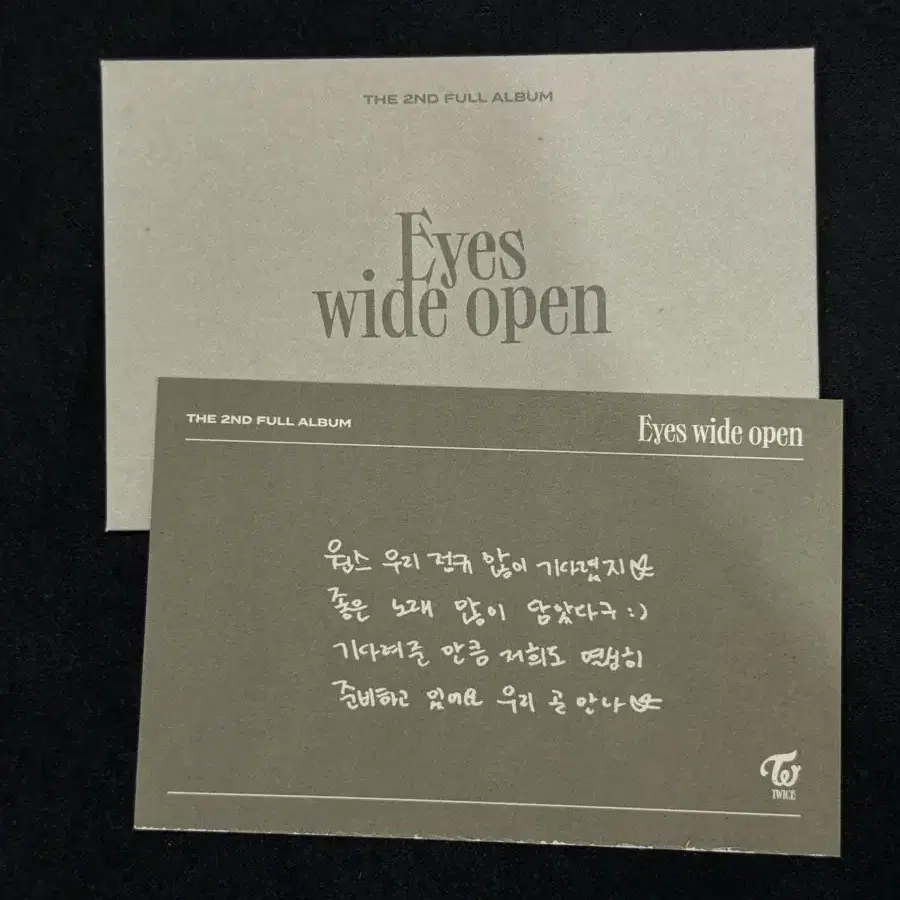 THE 2ND FULL ALBUM
Eyes
wide open
THE 2ND FULL ALBUM
Eyes wide open
원스 우리 정규 많이 기다렸지
좋은 노래 많이 담았다구 :)
기다려준 만큼 저희도 열심히
준비하고 있어요 우리 곧 만나
TWICE